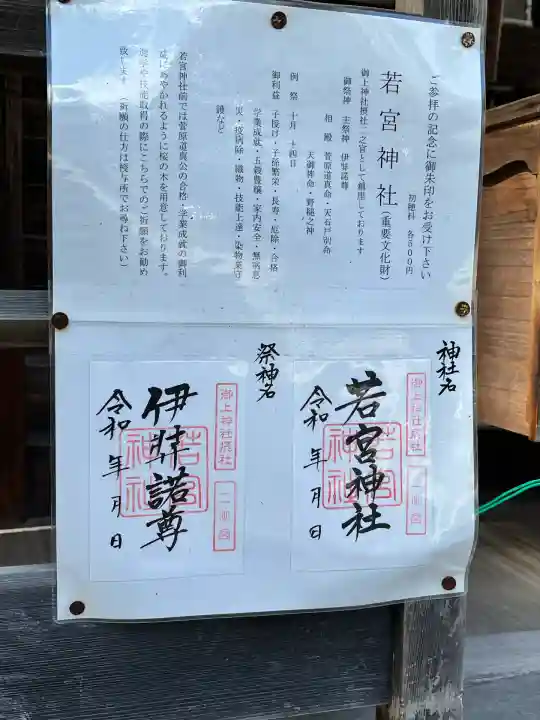 ご参拝の記念に御朱印をお受け下さい
初穂料 各500円
若宮神社(重要文化財)
御上神社摂社二之宮として鎮座しております
御祭神 主祭神 伊弉諾尊
相殿 菅原道真命・天石戸別命
天御祥命・野槌之神
例祭 十月 十四日
御利益 子授け・子孫繁栄・長寿・厄除・合格
学業成就・五穀豊穣・家内安全・無病息
災・疫病除・織物・技能上達・染物業守
護など
若宮神社前では菅原道真公の合格・学業成就の御利
益にあやかれるように桜の木を用意しております。
進学や技能取得の際にこちらでのご祈願をお勧め
致します。(祈願の仕方は授与所でお尋ね下さい)
神社名
御上神社摂社
二之宮
若宮神社
若宮神社
令和 年 月 日
祭神名
御上神社摂社
二之宮
伊弉諾尊
若宮神社
令和 年 月 日